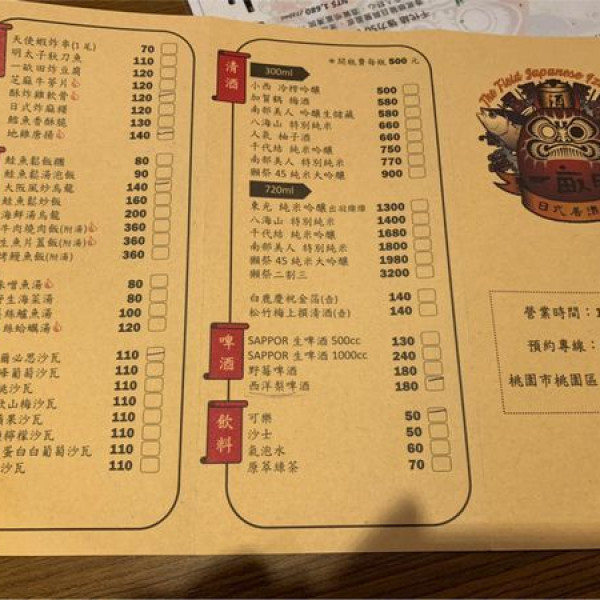 天使蝦炸串(1尾) 70
明太子秋刀魚 110
一畝田炸豆腐 80
芝麻牛蒡片 120
酥炸雞軟骨 120
日式炸麻糬 120
鱈魚香酥脆 130
地雞唐揚 140
鮭魚鬆飯糰 80
鮭魚鬆湯泡飯 90
大阪風炒烏龍 140
鮭魚鬆炒飯 160
海鮮湯烏龍 200
牛肉燒肉飯(附湯) 360
生魚片蓋飯(附湯) 360
烤鰻魚飯(附湯) 360
味噌魚湯 80
野生海菜湯 80
絲鱸魚湯 100
絲蛤蠣湯 120
爾必思沙瓦 110
峰葡萄沙瓦 110
桃沙瓦 110
山梅沙瓦 110
蘋果沙瓦 110
檸檬沙瓦 110
蛋白白葡萄沙瓦 110
沙瓦 110
清酒
300ml
※開瓶費每瓶500元
小西 冷榨吟釀 500
加賀鶴 梅酒 580
南部美人 吟釀生儲藏 580
八海山 特別純米 660
人氣 柚子酒 660
千代結 純米吟釀 750
南部美人 特別純米 770
獺祭45 純米大吟釀 900
720ml
東光 純米吟釀出羽燦燦 1300
八海山 特別純米 1400
千代結 純米吟釀 1680
南部美人 特別純米 1800
獺祭45 純米大吟釀 1980
獺祭二割三 3200
白鹿慶祝金箔(壺) 140
松竹梅上撰清酒(壺) 140
啤酒
SAPPOR 生啤酒 500cc 130
SAPPOR 生啤酒 1000cc 240
野莓啤酒 180
西洋梨啤酒 180
飲料
可樂 50
沙士 50
氣泡水 60
原萃綠茶 70
The Field Japanese
酒
一畝田
日式居酒
營業時間：1
預約專線：
桃園市桃園區
千代結 強力50
NT$ 1,680/720ml